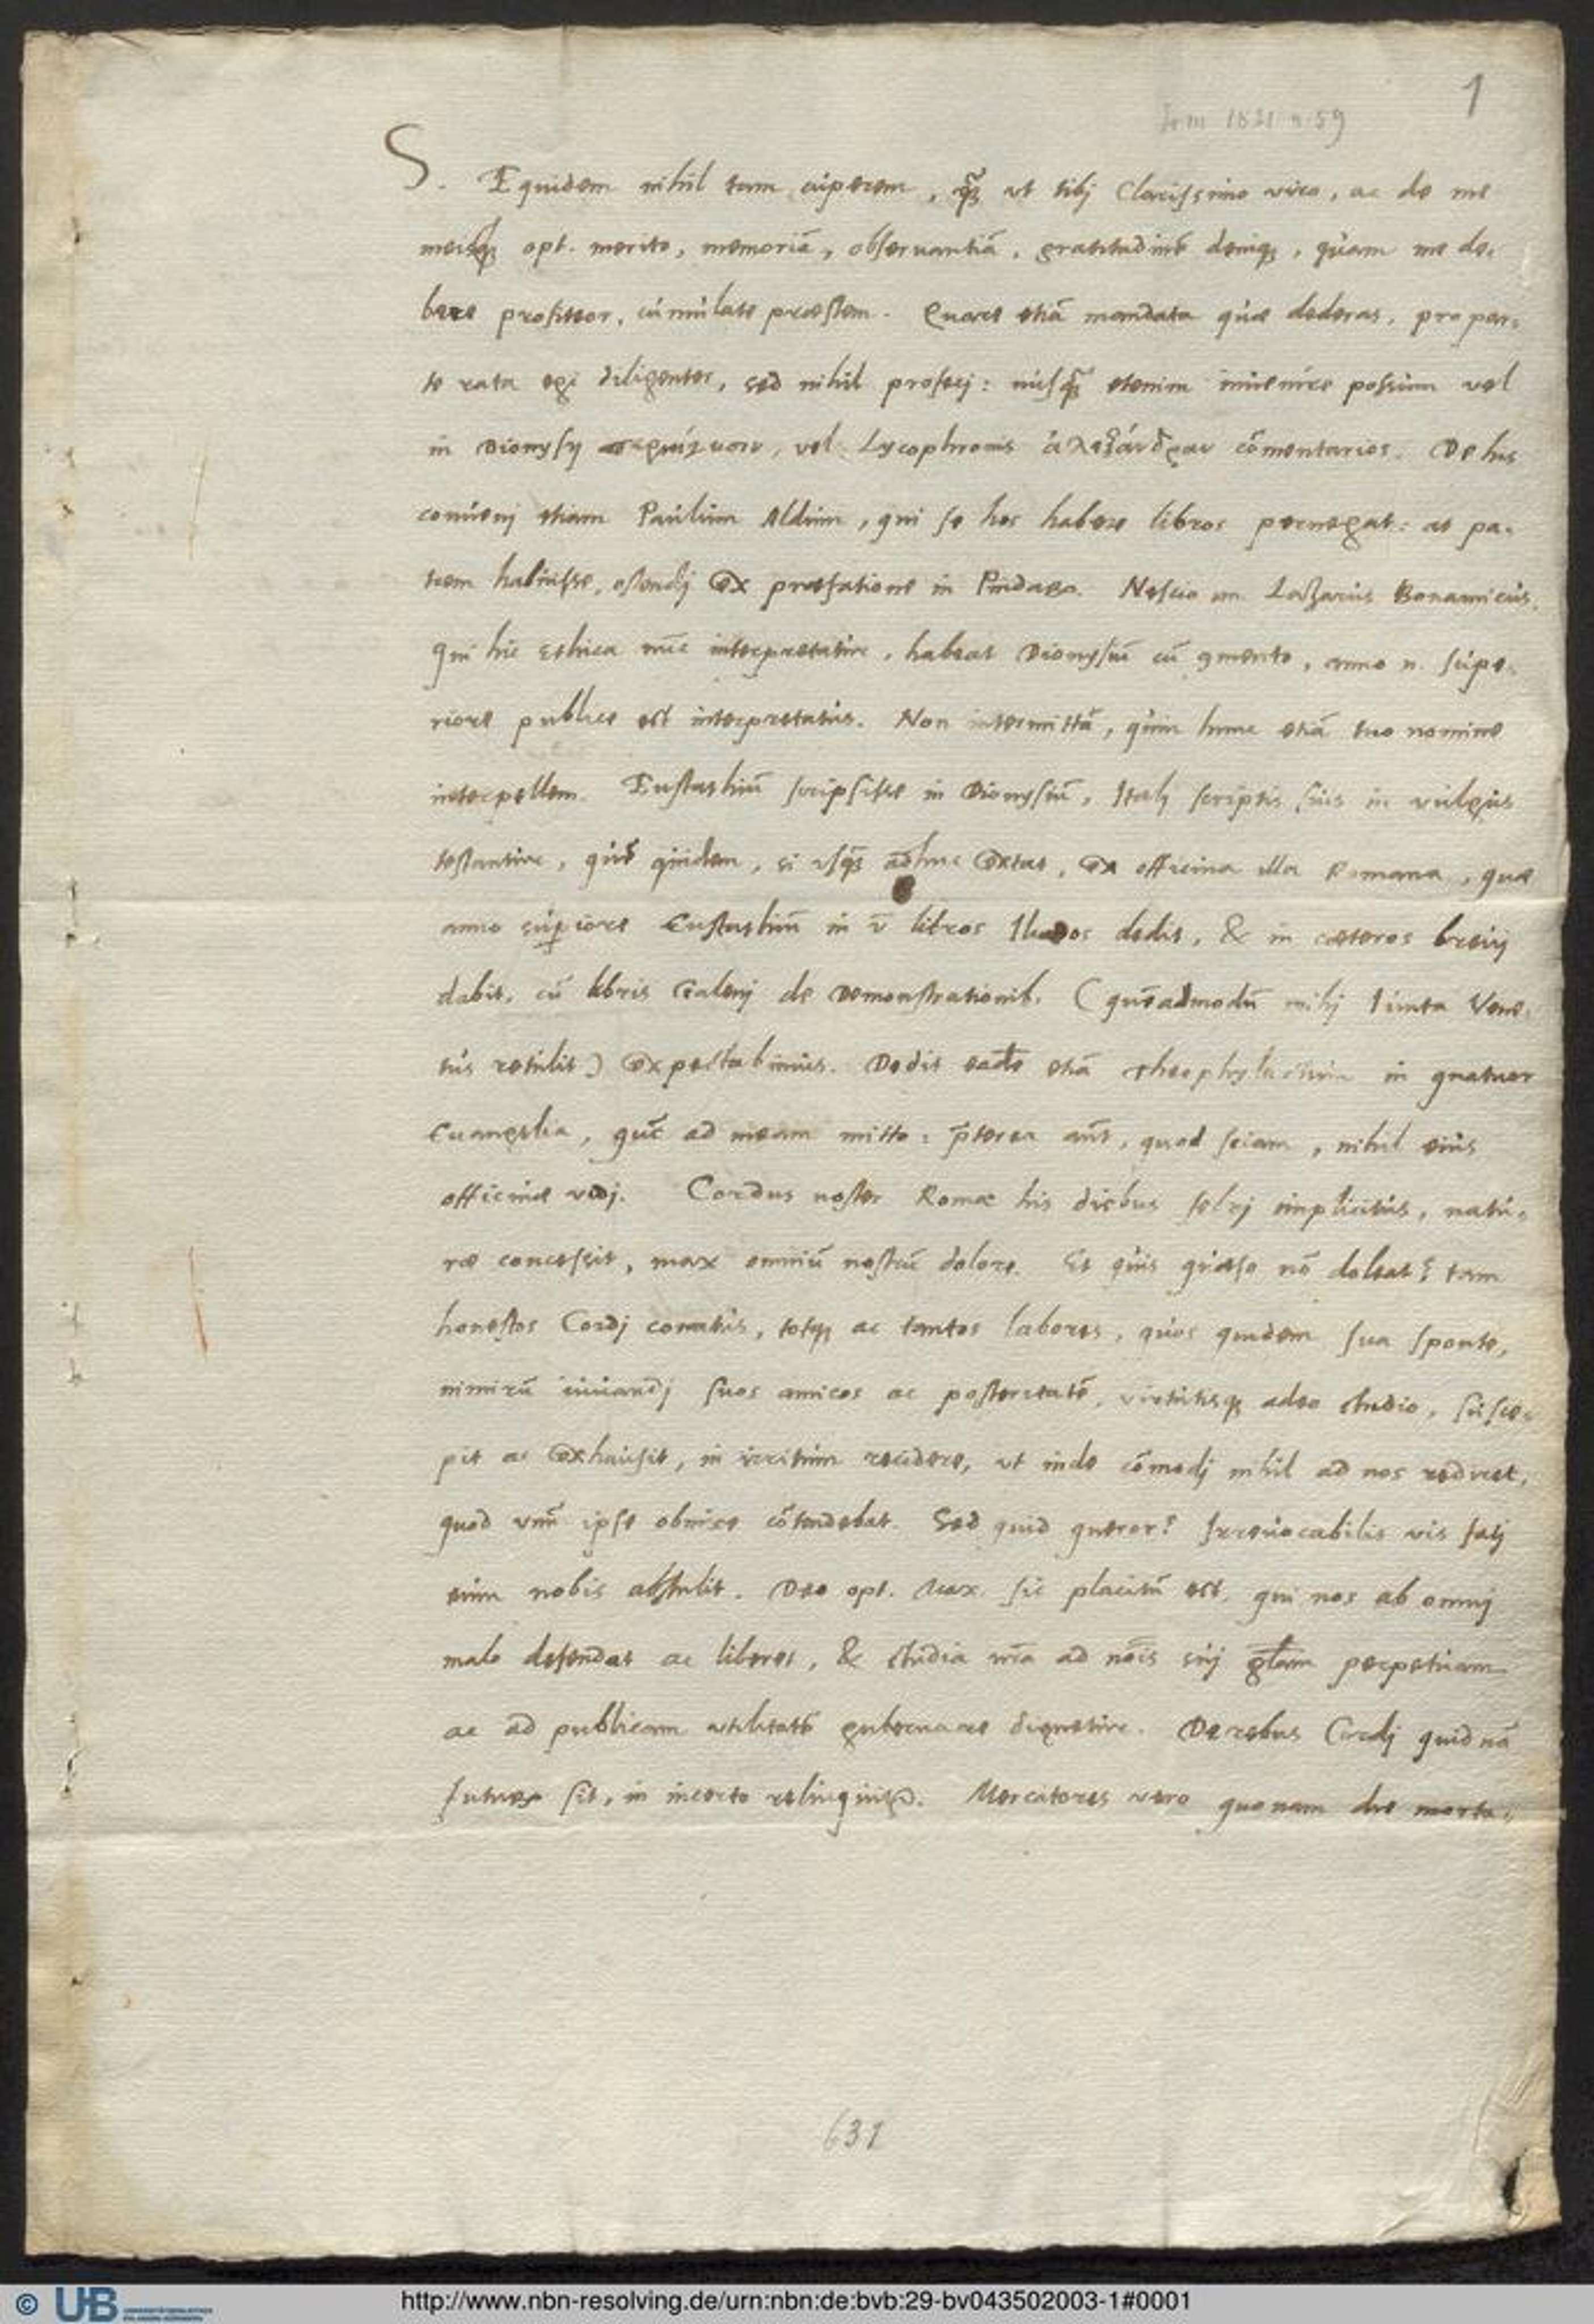 1
1821 n. 59
S. Equidem nihil tam cuperem, q̃ꝫ ut tibj Clarissimo viro, ac de me
meisqꝫ opt. merito, memoriã, obseruantiã, gratitudinẽ deniqꝫ, quam me de-
bere profiteor, cumulate præstem. Quare etiã mandata quæ dederas, pro par-
te rata egi diligenter, sed nihil profecj: nusq̃ꝫ etenim inuenire possum vel
in Dionysij περιήγησιν, vel Lycophronis ἀλεξάνδραν cõmentarios. De his
conuenj etiam Paulum Aldum, qui se hos habere libros pernegat: at pa-
trem habuisse, ostendj ex præfatione in Pindaro. Nescio an Lazarus Bonamicus,
qui hic Ethica nũc interpretatur, habeat Dionysiũ cũ ꝯmento, anno n. supe-
riore publice est interpretatus. Non intermittã, quin hunc etiã tuo nomine
interpellem. Eustathiũ scripsisse in Dionysiũ, Italj scriptis suis in vulgus
testantur, quẽ quidem, si usq̃ꝫ adhuc extat, ex officina illa Romana, quæ
anno superiore Eustathiũ in v̄ libros Iliados dedit, & in cæteros breuj
dabit, cũ libris Galenj de Demonstrationib. (quẽadmodũ mihj Iunta Vene-
tus retulit) expectabimus. Dedit eadẽ etiã Theophylactum in quatuor
Euangelia, quẽ ad meam mitto: p̄terea aũt, quod sciam, nihil eius
officinæ vidj. Cordus noster Romæ his diebus febrj implicitus, natu-
ræ concessit, max omniũ nostrũ dolore. Et quis quæso nõ doleat? tam
honestos Cordj conatus, totqꝫ ac tantos labores, quos quidem sua sponte,
nimirũ iuuandj suos amicos ac posteritatẽ, virtutisqꝫ adeo studio, susce-
pit ac exhausit, in irritum recidere, ut inde cõmodj nihil ad nos rediret,
quod unũ ipse obnixe cõtendebat. Sed quid queror? Irreuocabilis vis fatj
eum nobis abstulit. Deo opt. Max. sic placitũ est, qui nos ab omnj
malo defendat ac liberet, & studia nr̃a ad nõis suj gl̃am perpetuam
ac ad publicam utilitatẽ gubernare dignetur. De rebus Cordj quidnã
futurũ sit, in incerto relinquitur. Mercatores vero quonam die morta-
631
© UB
http://www.nbn-resolving.de/urn:nbn:de:bvb:29-bv043502003-1#0001